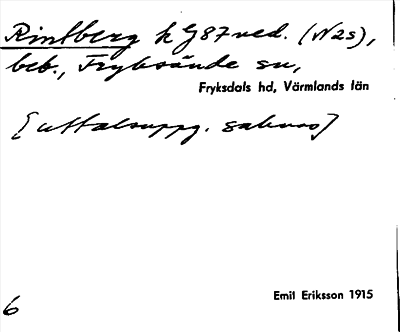 Rintberg h G87 ved. (N2s),
beb., Fryksände sn,
Fryksdals hd, Värmlands län
[uttalsuppg. saknas]
Emil Eriksson 1915
6